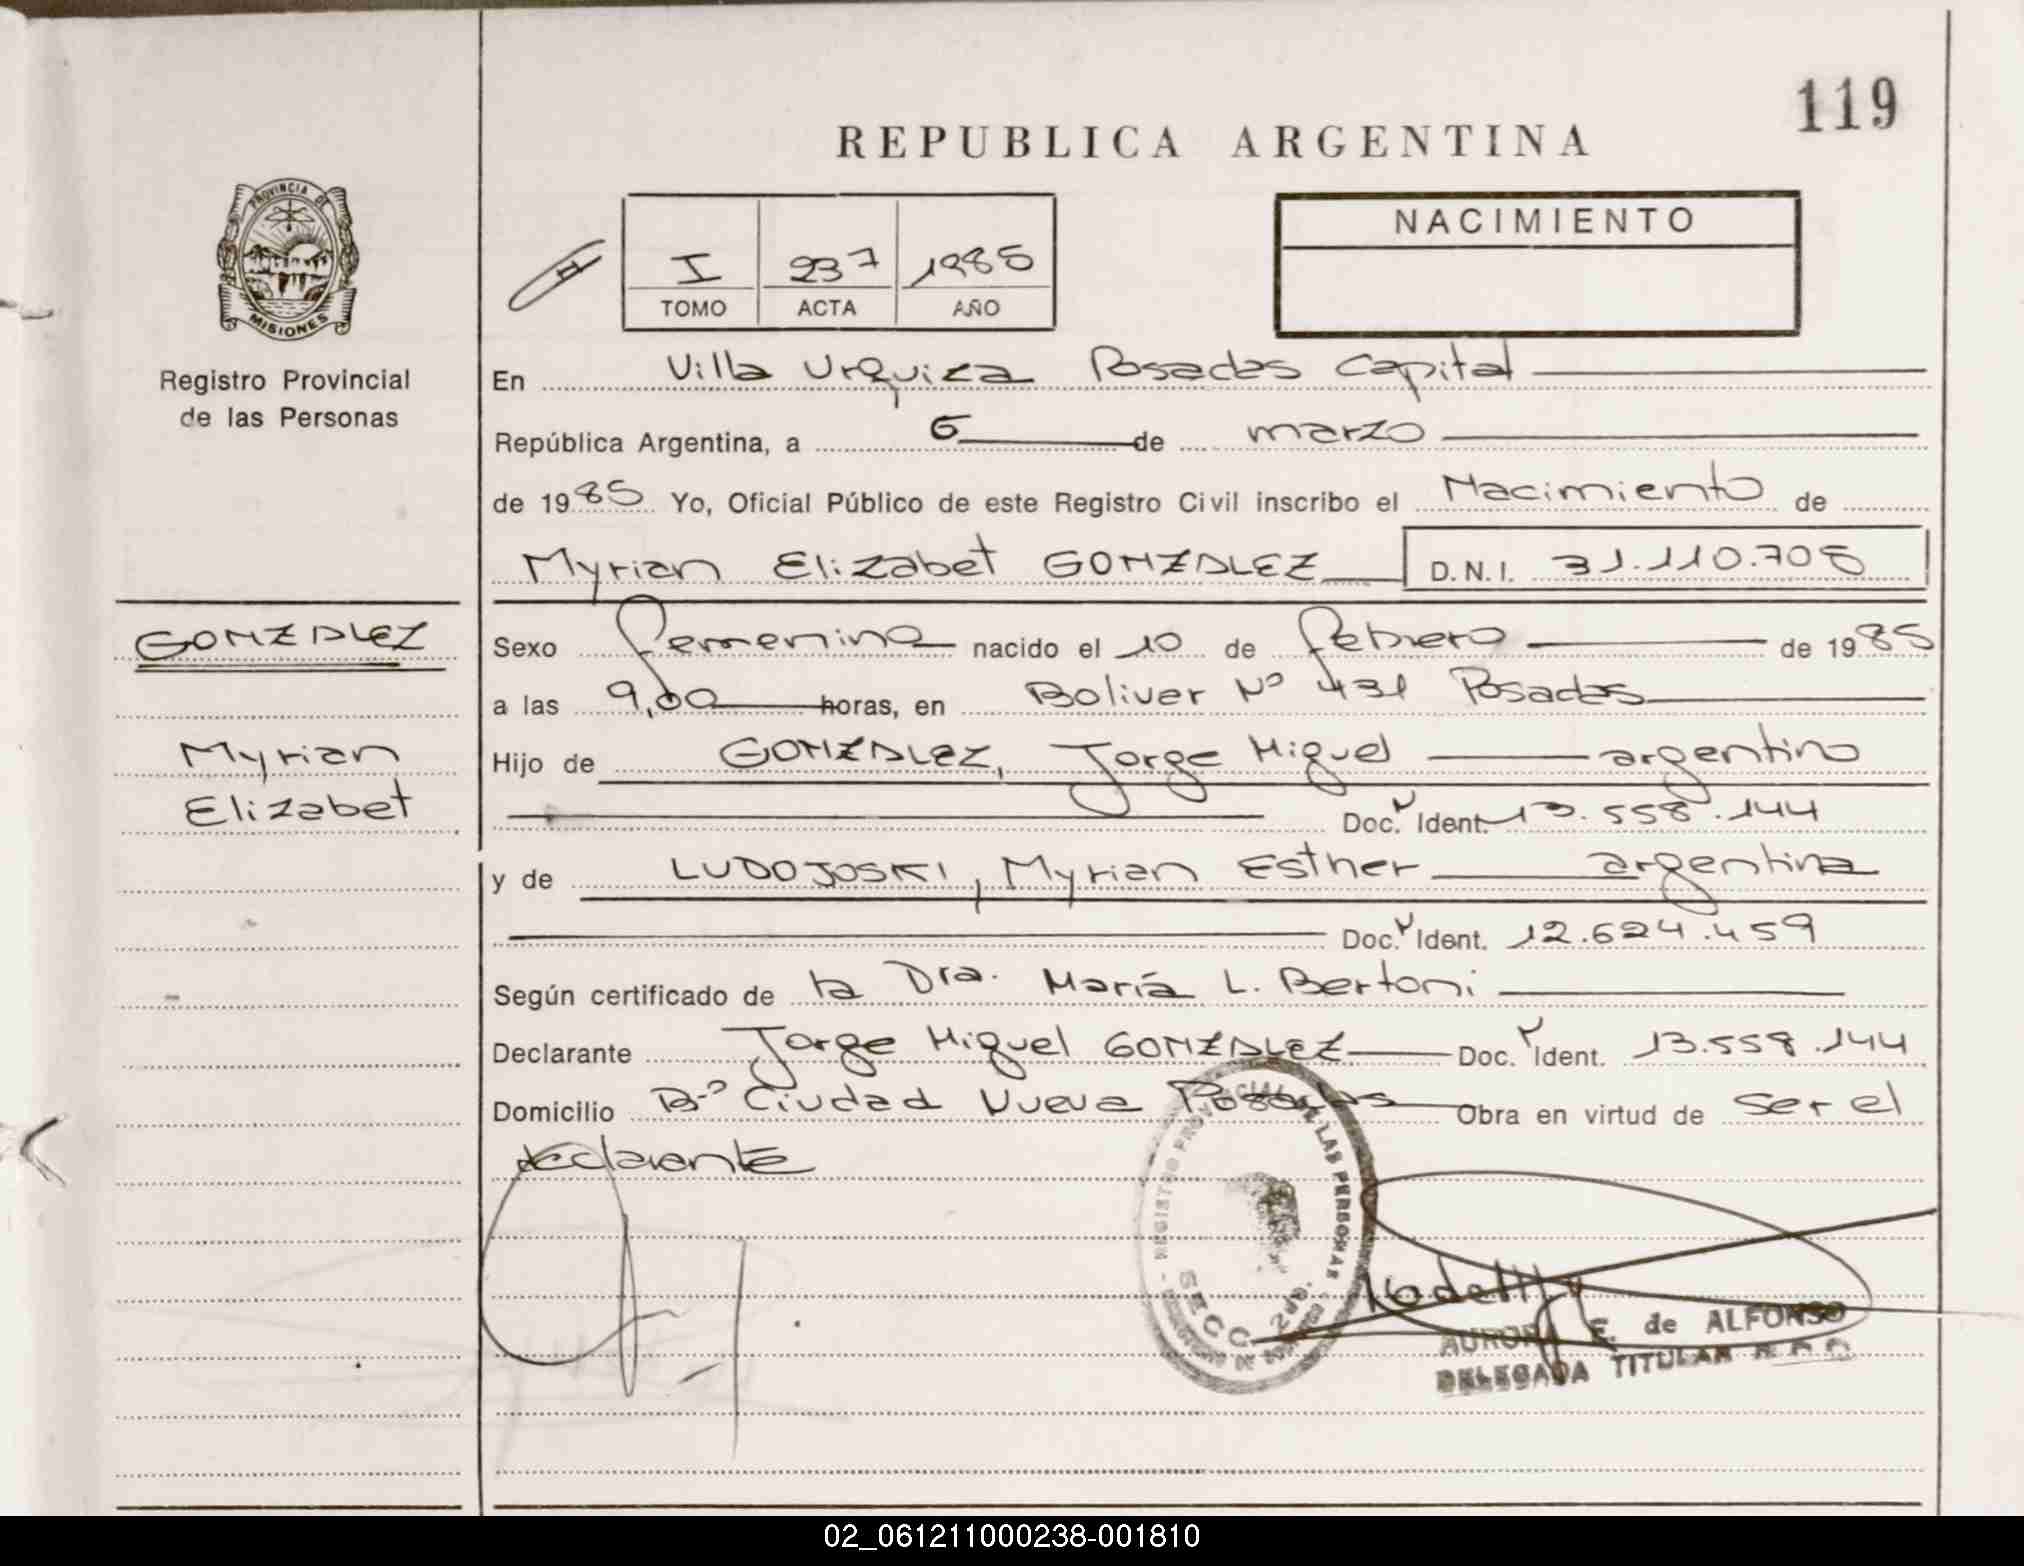 119
REPUBLICA ARGENTINA
PROVINCIA DE
MISIONES
Registro Provincial
de las Personas
I 237 1985
TOMO ACTA AÑO
NACIMIENTO
En Villa Urquiza Posadas Capital
República Argentina, a 6 de marzo
de 1985 Yo, Oficial Público de este Registro Civil inscribo el Nacimiento de
Myrian Elizabet GONZALEZ D.N.I. 31.110.705
GONZALEZ
Myrian
Elizabet
Sexo femenino nacido el 10 de febrero de 1985
a las 9,00 horas, en Boliver Nº 431 Posadas
Hijo de GONZALEZ, Jorge Miguel argentino
Doc. Ident. 13.558.144
y de LUDOJOSKI, Myrian Esther argentina
Doc. Ident. 12.624.459
Según certificado de la Dra. María L. Bertoni
Declarante Jorge Miguel GONZALEZ Doc. Ident. 13.558.144
Domicilio Bº Ciudad Nueva Posadas Obra en virtud de ser el
declarante
REGISTRO PROVINCIAL DE LAS PERSONAS
SECC. 2da.
AURORA E. de ALFONSO
DELEGADA TITULAR
02_061211000238-001810